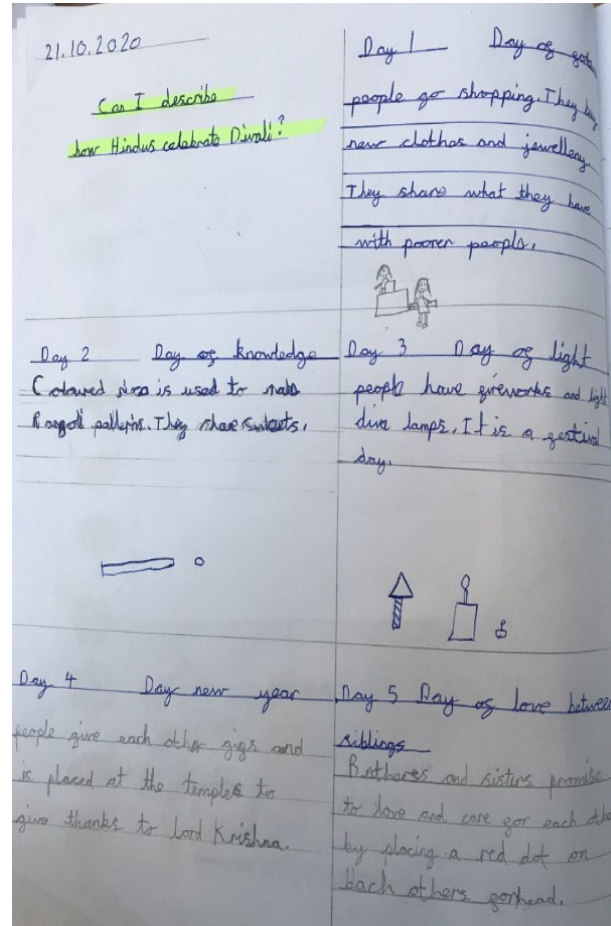 21.10.2020
Can I describe
how Hindus celebrate Divali?
Day 1 Day of
people go shopping. They buy
new clothes and jewellery.
They share what they have
with poorer people.
Day 2 Day of knowledge
Coloured rice is used to make
Rangoli patterns. They share sweets.
Day 3 Day of light
people have fireworks and light
diva lamps. It is a festival
day.
Day 4 Day new year
people give each other gifs and
is placed at the temples to
give thanks to lord Krishna.
Day 5 Day of love between
siblings
Brothers and sisters promise
to love and care for each othe
by placing a red dot on
each others forhead.